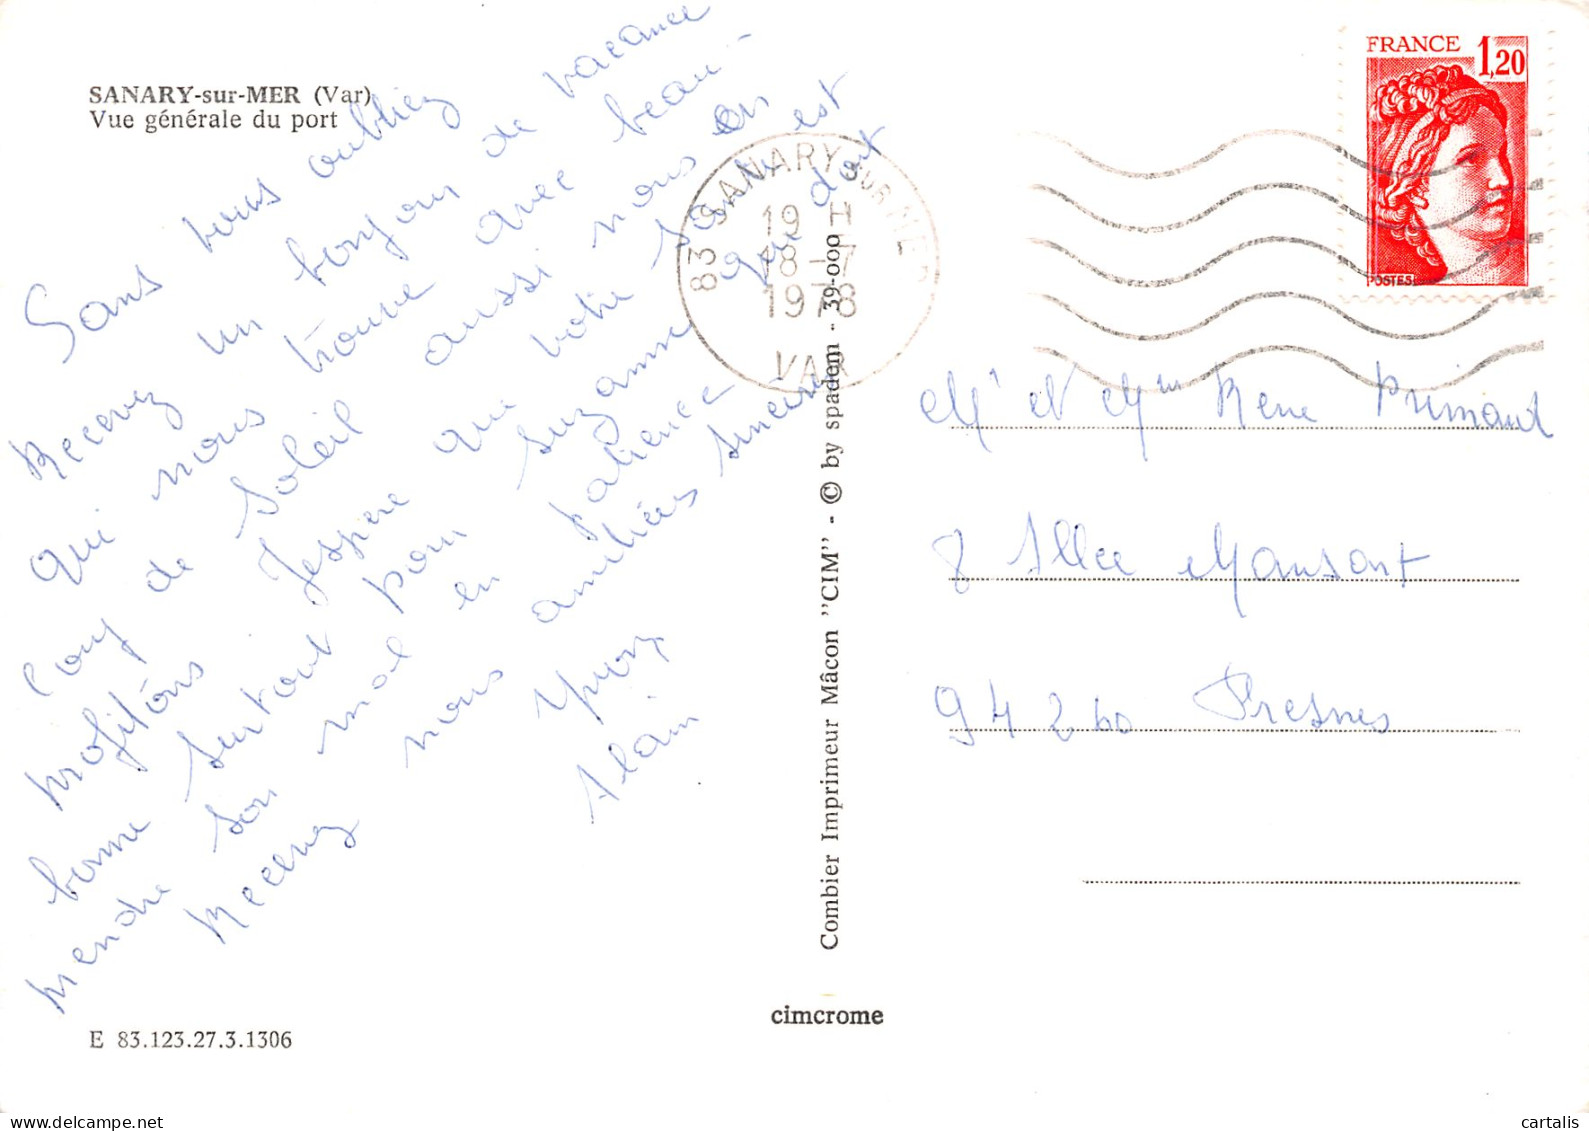 SANARY-sur-MER (Var)
Vue générale du port
Sans vous oubliez
Recevez un bonjour de vacance
qui nous trouve avec beau-
coup de soleil aussi nous en
profitons Jespere que votre santé est
bonne surtout pour Suzanne qui doit
prendre son mal en patience
Recevez nous amitiées sincere
Yvon
Alain
E 83.123.27.3.1306
Combier Imprimeur Mâcon "CIM" - © by spadem - 39-000
cimcrome
83 SANARY SUR MER
19 H
18-7
1978
VAR
FRANCE 1,20
POSTES
Mr et Mm Rene Primaud
8 Allee Mansart
94260 Fresnes
cartalis